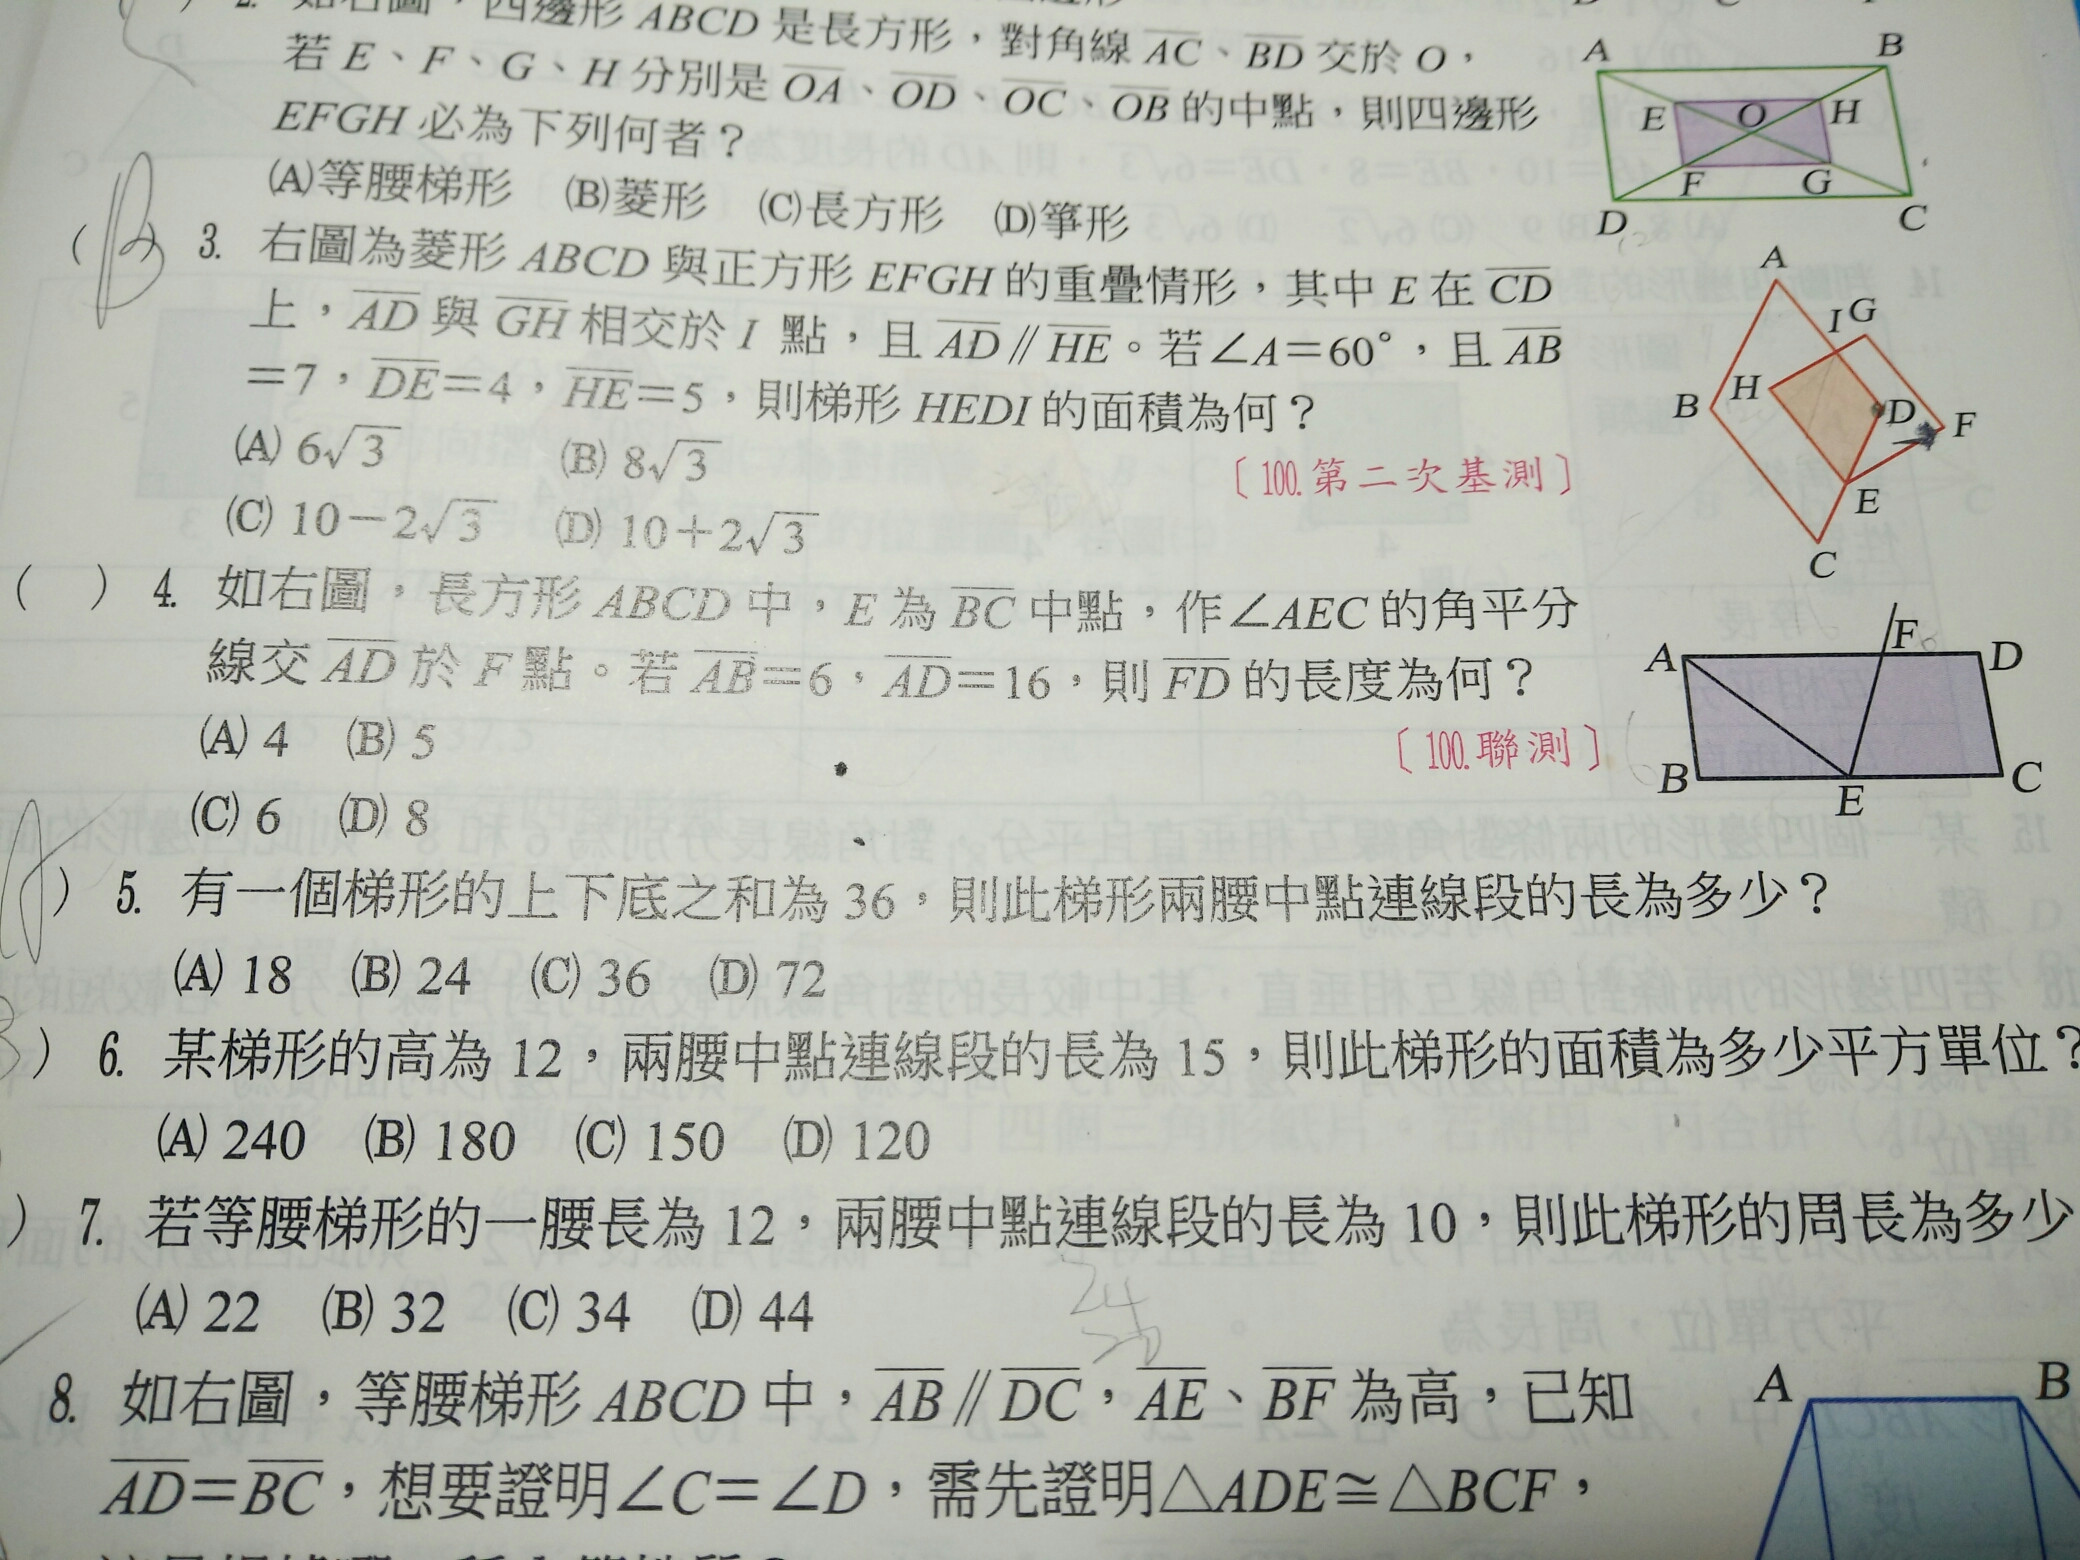 2. 如右圖，四邊形 ABCD 是長方形，對角線 AC、BD 交於 O，
若 E、F、G、H 分別是 OA、OD、OC、OB 的中點，則四邊形
EFGH 必為下列何者？
(A)等腰梯形 (B)菱形 (C)長方形 (D)箏形
A B E O H F G D C
(B) 3. 右圖為菱形 ABCD 與正方形 EFGH 的重疊情形，其中 E 在 CD
上，AD 與 GH 相交於 I 點，且 AD // HE。若∠A=60°，且 AB
=7，DE=4，HE=5，則梯形 HEDI 的面積為何？
(A) 6√3 (B) 8√3
〔100.第二次基測〕
(C) 10-2√3 (D) 10+2√3
A I G H B D F E C
( ) 4. 如右圖，長方形 ABCD 中，E 為 BC 中點，作∠AEC 的角平分
線交 AD 於 F 點。若 AB=6，AD=16，則 FD 的長度為何？
(A) 4 (B) 5
〔100.聯測〕
(C) 6 (D) 8
A F D B E C
) 5. 有一個梯形的上下底之和為 36，則此梯形兩腰中點連線段的長為多少？
(A) 18 (B) 24 (C) 36 (D) 72
) 6. 某梯形的高為 12，兩腰中點連線段的長為 15，則此梯形的面積為多少平方單位？
(A) 240 (B) 180 (C) 150 (D) 120
) 7. 若等腰梯形的一腰長為 12，兩腰中點連線段的長為 10，則此梯形的周長為多少
(A) 22 (B) 32 (C) 34 (D) 44
24
20
8. 如右圖，等腰梯形 ABCD 中，AB // DC，AE、BF 為高，已知
AD=BC，想要證明∠C=∠D，需先證明△ADE≅△BCF，
A B